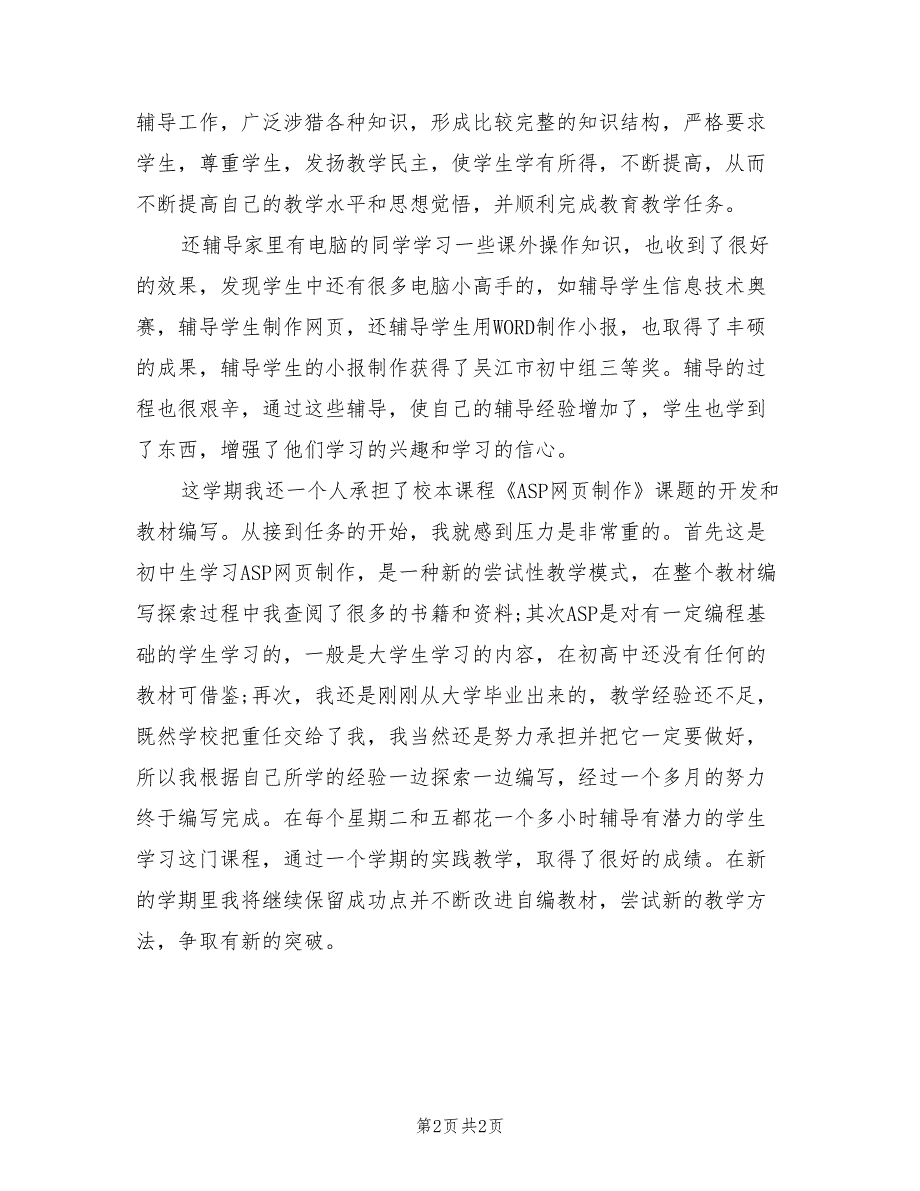 辅导工作，广泛涉猎各种知识，形成比较完整的知识结构，严格要求
学生，尊重学生，发扬教学民主，使学生学有所得，不断提高，从而
不断提高自己的教学水平和思想觉悟，并顺利完成教育教学任务。
还辅导家里有电脑的同学学习一些课外操作知识，也收到了很好
的效果，发现学生中还有很多电脑小高手的，如辅导学生信息技术奥
赛，辅导学生制作网页，还辅导学生用WORD制作小报，也取得了丰硕
的成果，辅导学生的小报制作获得了吴江市初中组三等奖。辅导的过
程也很艰辛，通过这些辅导，使自己的辅导经验增加了，学生也学到
了东西，增强了他们学习的兴趣和学习的信心。
这学期我还一个人承担了校本课程《ASP网页制作》课题的开发和
教材编写。从接到任务的开始，我就感到压力是非常重的。首先这是
初中生学习ASP网页制作，是一种新的尝试性教学模式，在整个教材编
写探索过程中我查阅了很多的书籍和资料;其次ASP是对有一定编程基
础的学生学习的，一般是大学生学习的内容，在初高中还没有任何的
教材可借鉴;再次，我还是刚刚从大学毕业出来的，教学经验还不足，
既然学校把重任交给了我，我当然还是努力承担并把它一定要做好，
所以我根据自己所学的经验一边探索一边编写，经过一个多月的努力
终于编写完成。在每个星期二和五都花一个多小时辅导有潜力的学生
学习这门课程，通过一个学期的实践教学，取得了很好的成绩。在新
的学期里我将继续保留成功点并不断改进自编教材，尝试新的教学方
法，争取有新的突破。
第2页 共2页